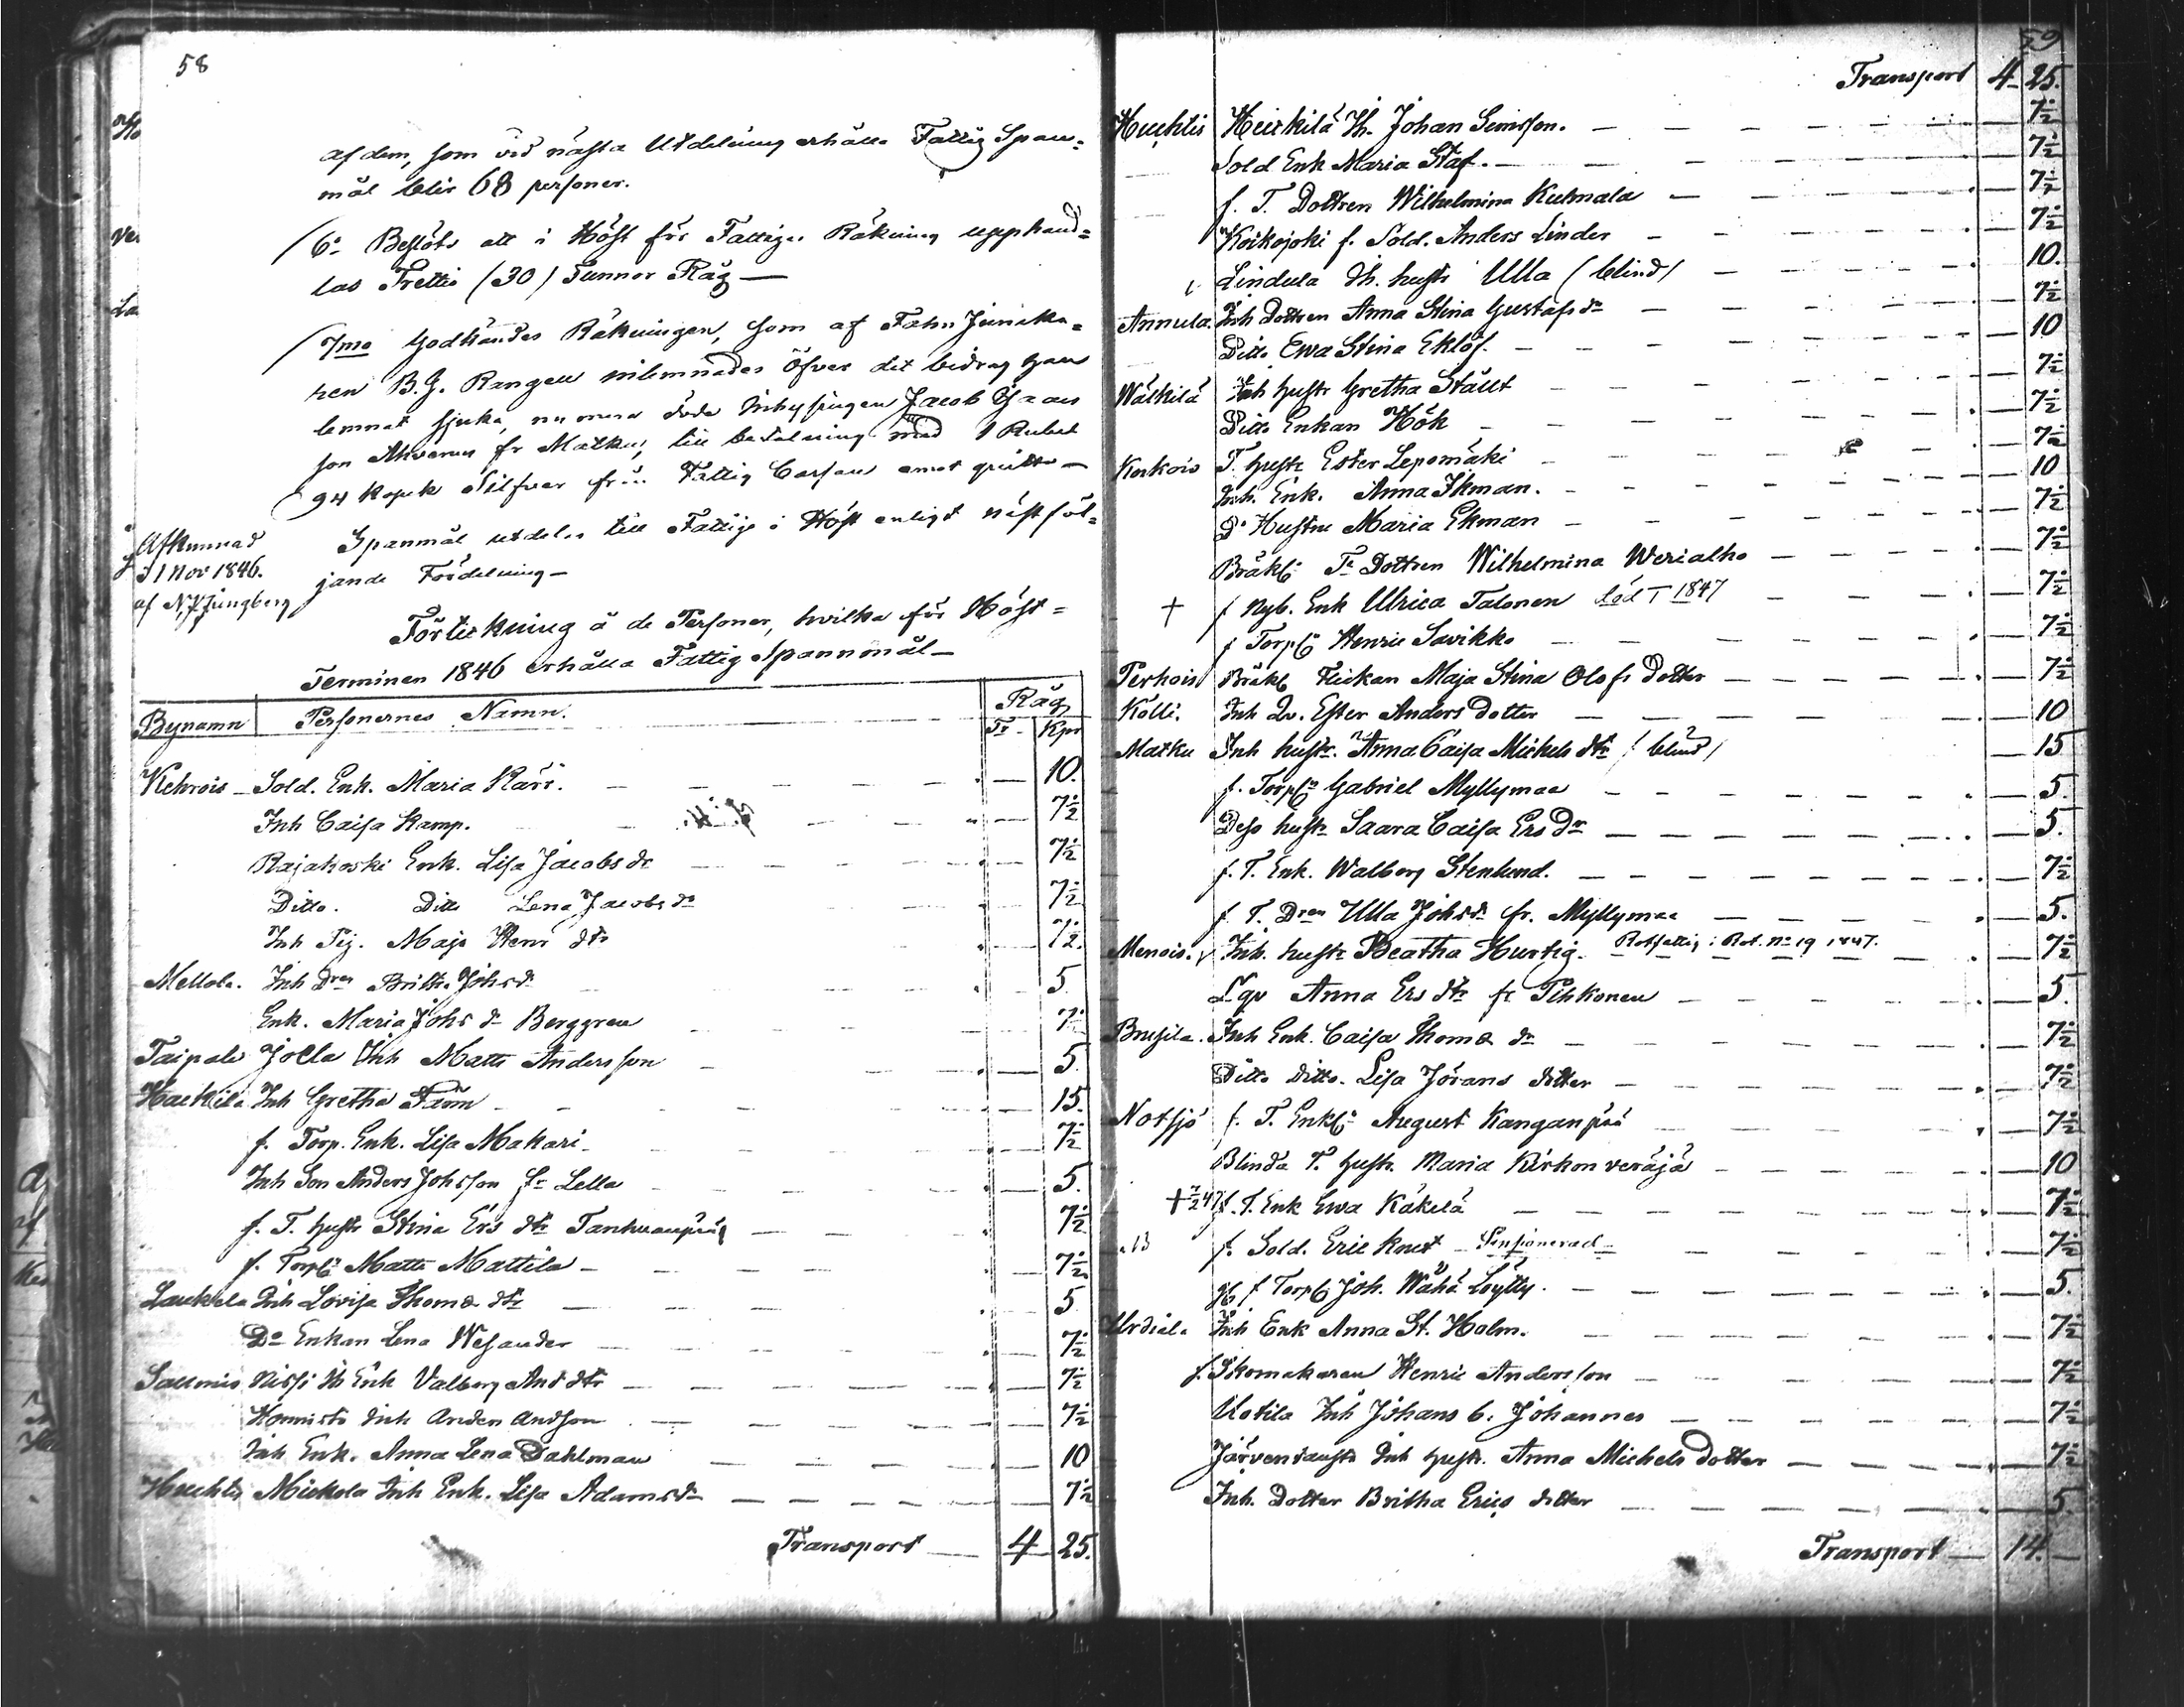 58
af dem, som vid nästa Utdelning erhålla Fattig Span-
mål blir 68 personer.
6o Beslöts att i Höst för Fattiges Räkning upphand-
las Trettio (30) Tunnor Råg —
7mo Godkändes Räkningen, som af Fahnjunka-
ren B.G. Rangell inlemnades öfver det bidrag han
lemnat sjuka, nu mera döde Inhysingen Jacob
son fr Matku, till betalning med 1 Rubel
94 Kopek Silfver från Fattig Cassan emot quitto —
Afkunnad
d 1 Nov 1846.
af N.P. Ljungberg
Spanmål utdelas till Fattige i Höst enligt näst föl-
jande Fördelning —
Förteckning å de Personer, hvilka för Höst-
Terminen 1846 erhålla Fattig Spannmål —
Bynamn Personernes Namn. Råg
Tr Kpr
Kehrois Sold. Enk. Maria Karr. 10.
Inh Caisa Kamp. 7½
Rajakoski Enk. Lisa Jacobs dr 7½
Ditto. Ditto Lena Jacobs dr 7½
Inh Pig. Maja Henr dtr 7½
Mellola. Inh Dren Britha Johs dr 5.
Enk. Maria Johs dr Berggren 7½
Taipale Jolla Inh Matts Andersson 5.
Haekilä Inh Gretha Färm 15.
f. Torp. Enk. Lisa Makari 7½
Inh Son Anders Johsson fr Lella 5.
f. T. hustr Stina Ers dtr Tanhuanpää 7½
f. Torp Matts Mattila 7½
Laukela Inh Lovisa Thomæ dtr 5
Do Enkan Lena Wesander 7½
Salmis Nissi Ih Enk Valborg And dtr 7½
Hannisto Inh Anders Andsson 7½
Inh Enk. Anna Lena Dahlman 10
Huchtis Mickola Inh Enk. Lisa Adamsdr 7½
Transport 4 25.
59
Transport 4 25.
Huchtis Heikkilä Ih. Johan Simsson. 7½
Sold Enk Maria Staf. 7½
f. T. Dottren Wilhelmina Kulmala 7½
Koikojoki f. Sold. Anders Linder 7½
Lindula Ih. hustr Ulla (blind) 10.
Annula. Inh Dottren Anna Stina Gustafs dr 7½
Ditto Ewa Stina Eklöf. 10
Wälkilä Inh hustr Gretha Stält 7½
Ditto Enkan Hök 7½
Korkois T. hustr Ester Lepomäki 7½
Inh. Enk. Anna Ikman. 10
Do Hustru Maria Ekman 7½
Bräkl: Tr Dottren Wilhelmina Werialho 7½
† f Nyb. Enk Ulrica Talonen död 1847 7½
f Torp Henric Savikko 7½
Perhois Bräkl Flickan Maja Stina Olofs Dotter 7½
Kölli. Inh Qv. Ester Anders dotter 10
Matku Inh hustr. Anna Caisa Michels dtr (blind) 15
f. Torp Gabriel Myllymaa 5.
Dess hustr Saara Caisa Ers Dr 5.
f. T. Enk. Walborg Stenlund. 7½
f T. Dren Ulla Johsdr fr. Myllymaa 5.
Menois. Inh. hustr Beatha Hurtig. Rotfattig i Rot. No 19 1847. 7½
Lqv Anna Ers dtr fr Pihkonen 5.
Brusila. Inh Enk. Caisa Thomæ dr 7½
Ditto Ditto. Lisa Jörans dotter 7½
Notsjö f. T. Enkl: August Kanganpää 7½
Blinda T. hustr. Maria Kirkon veräjä 10
† 7/2 47 f. T. Enk Ewa Käkelä 7½
f. Sold. Eric Knut Pensionerad 7½
f Torp Joh. Wähä Löylly. 5.
Urdiala Inh Enk Anna St. Holm. 7½
f. Skomakaren Henric Andersson 7½
Uotila Inh Johans b. Johannes 7½
Järventausta Inh hustr. Anna Michels dotter 7½
Inh. Dotter Britha Erics dotter 5.
Transport 14. —